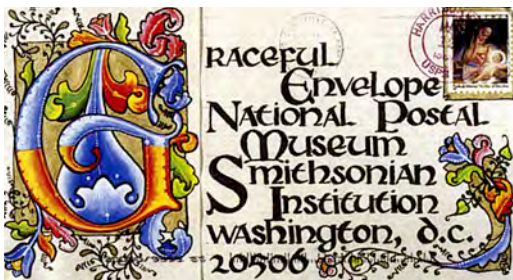 GRACEFUL
Envelope
National Postal
Museum
Smithsonian
Institution
Washington, d.c.
20500
USPS